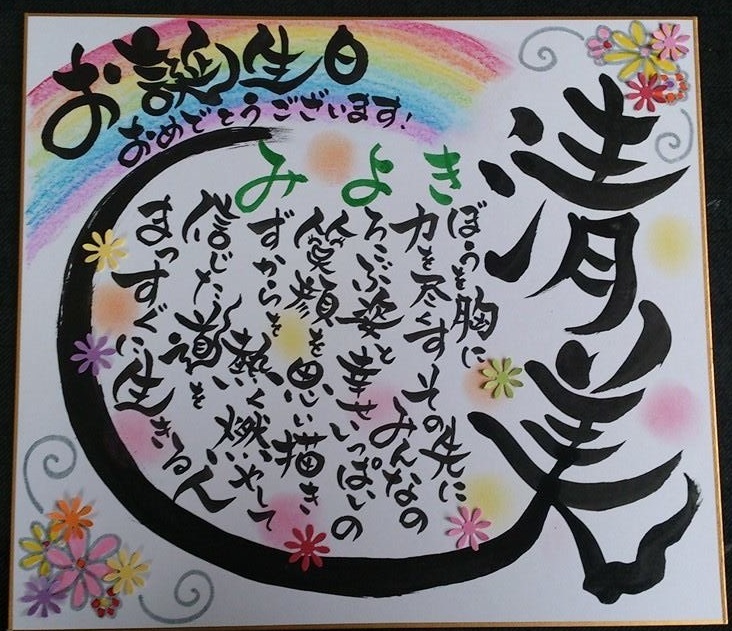 お誕生日
おめでとうございます!
清美
きぼうを胸に
力を尽くすその先に
よろこぶ姿と
みんなの
幸せいっぱいの
笑顔を思い描き
みずからを
熱く燃やして
信じた道を
まっすぐに生きる人